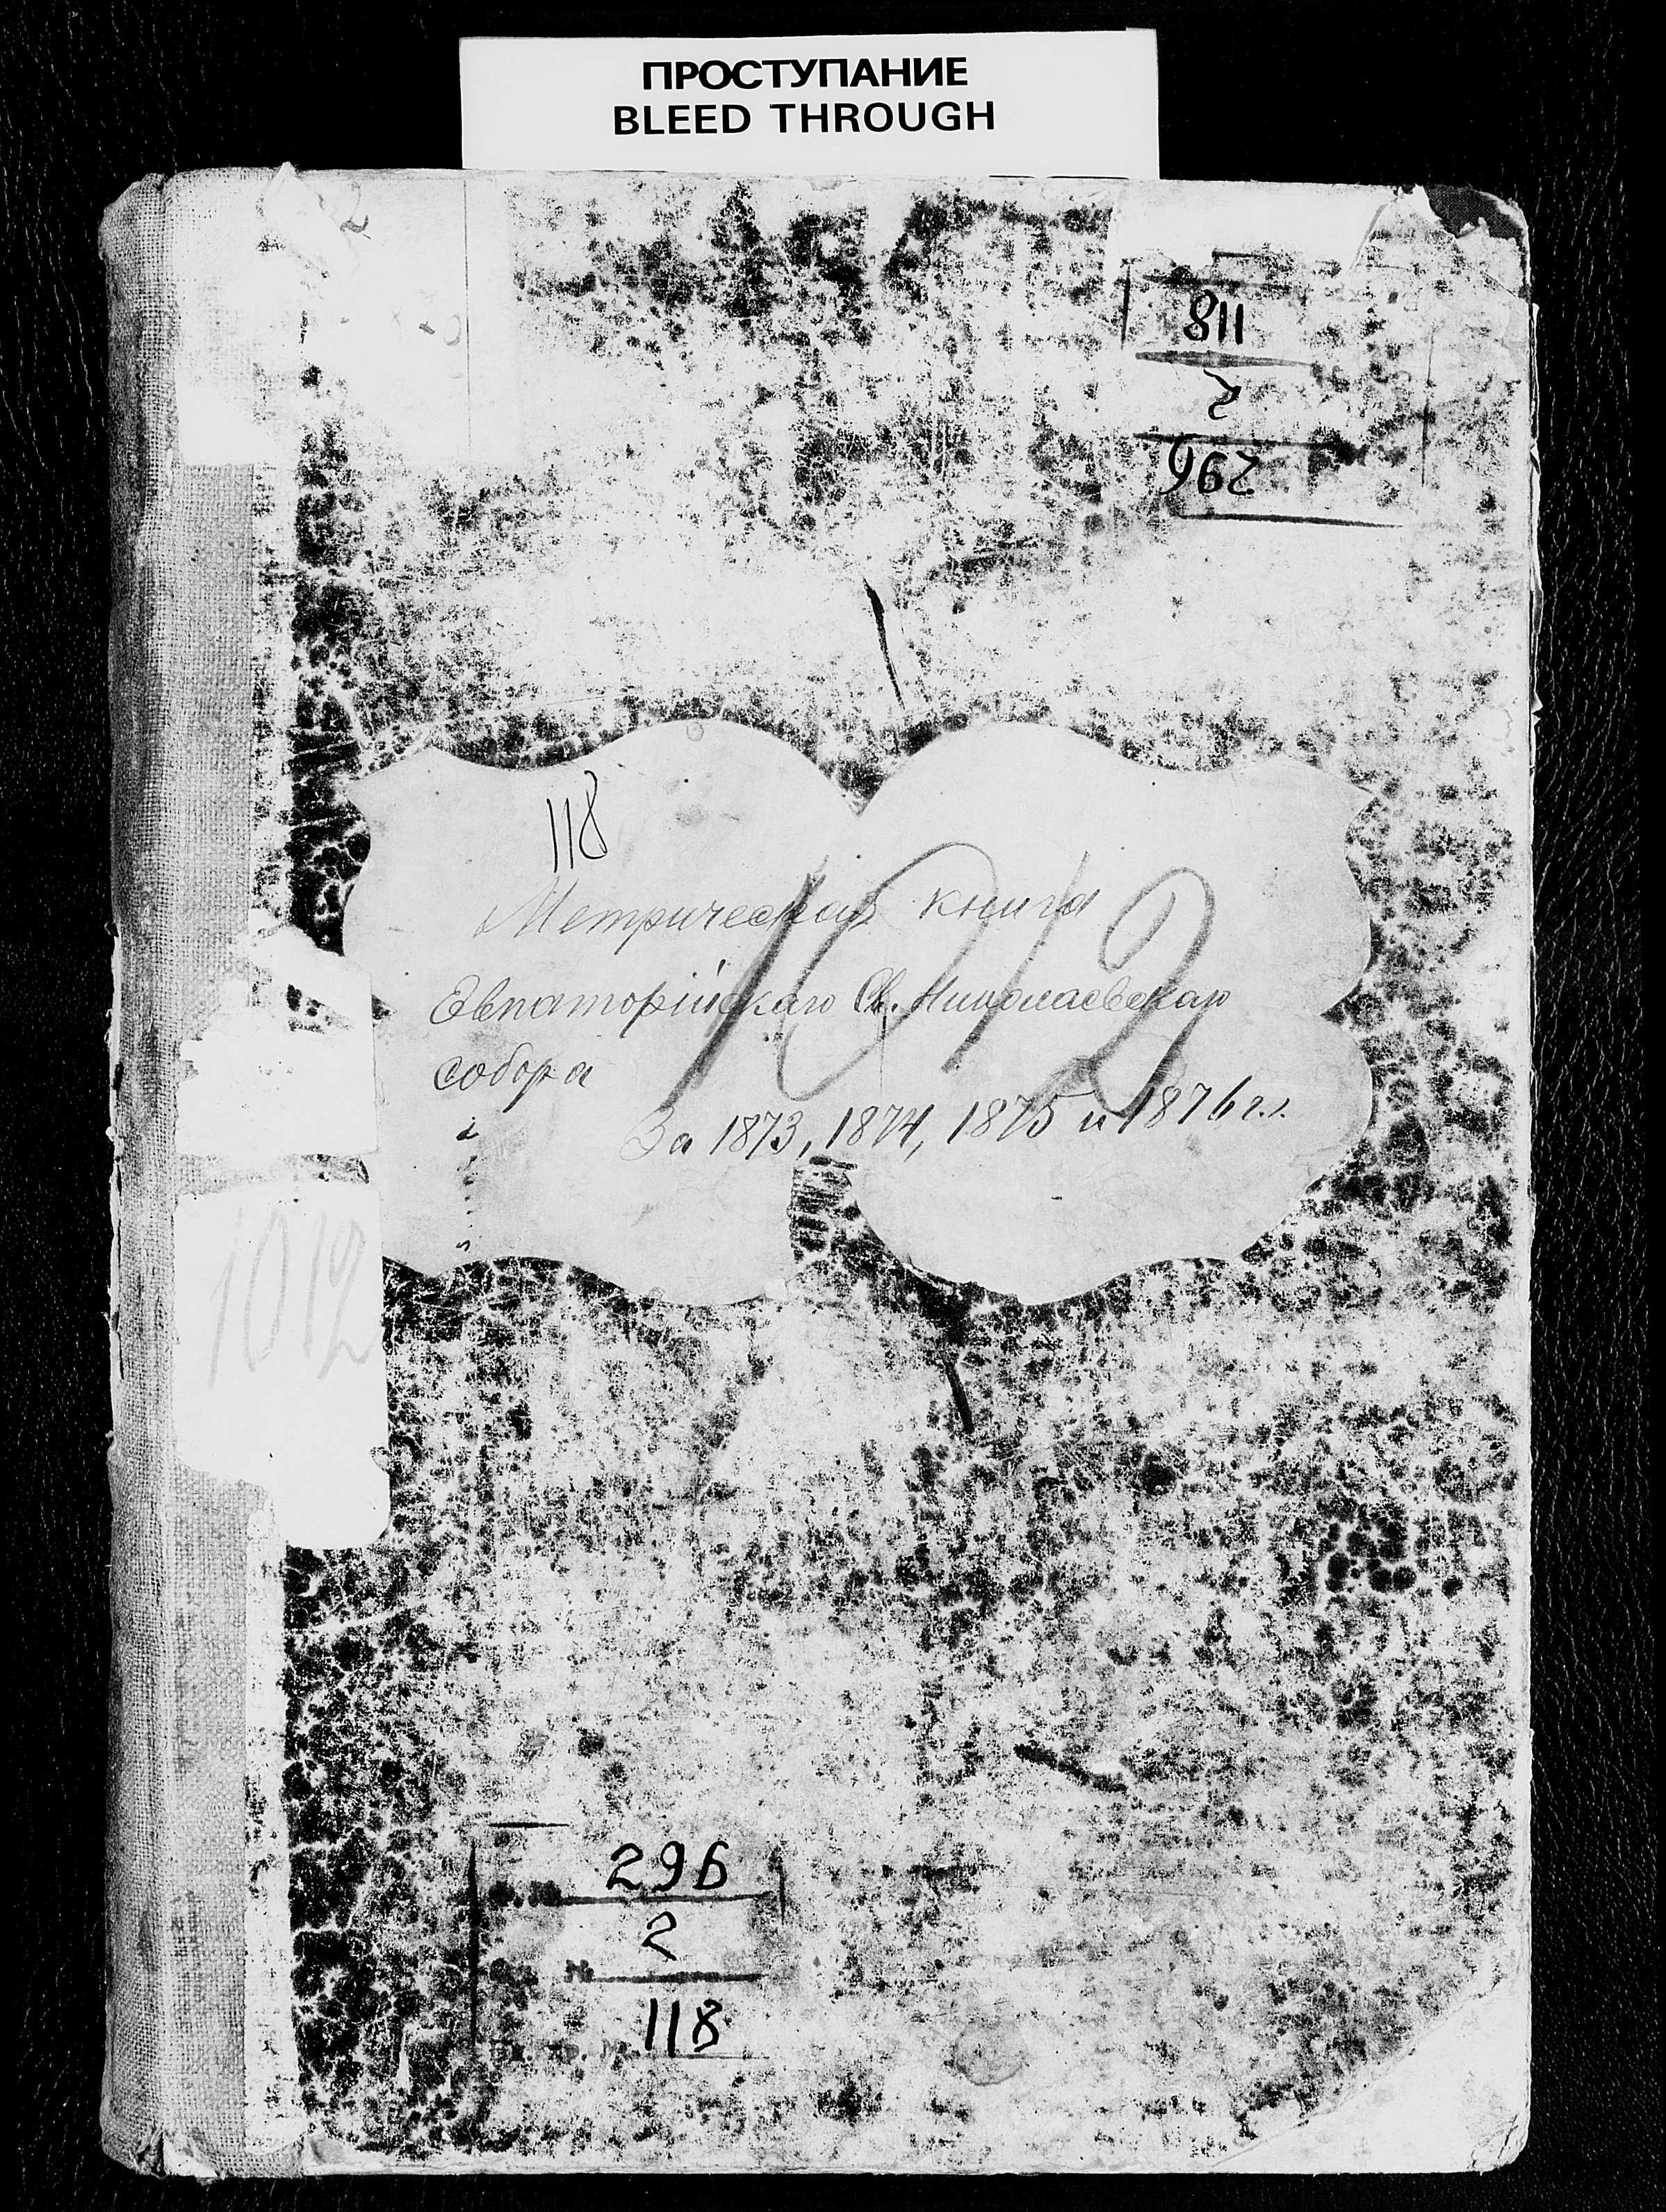 ПРОСТУПАНИЕ
BLEED THROUGH
118
2
296
118
1012
Метрическая книга
Евпаторійскаго Св. Николаевскаго
собора
За 1873, 1874, 1875 и 1876 г.г.
1012
296
2
№
118